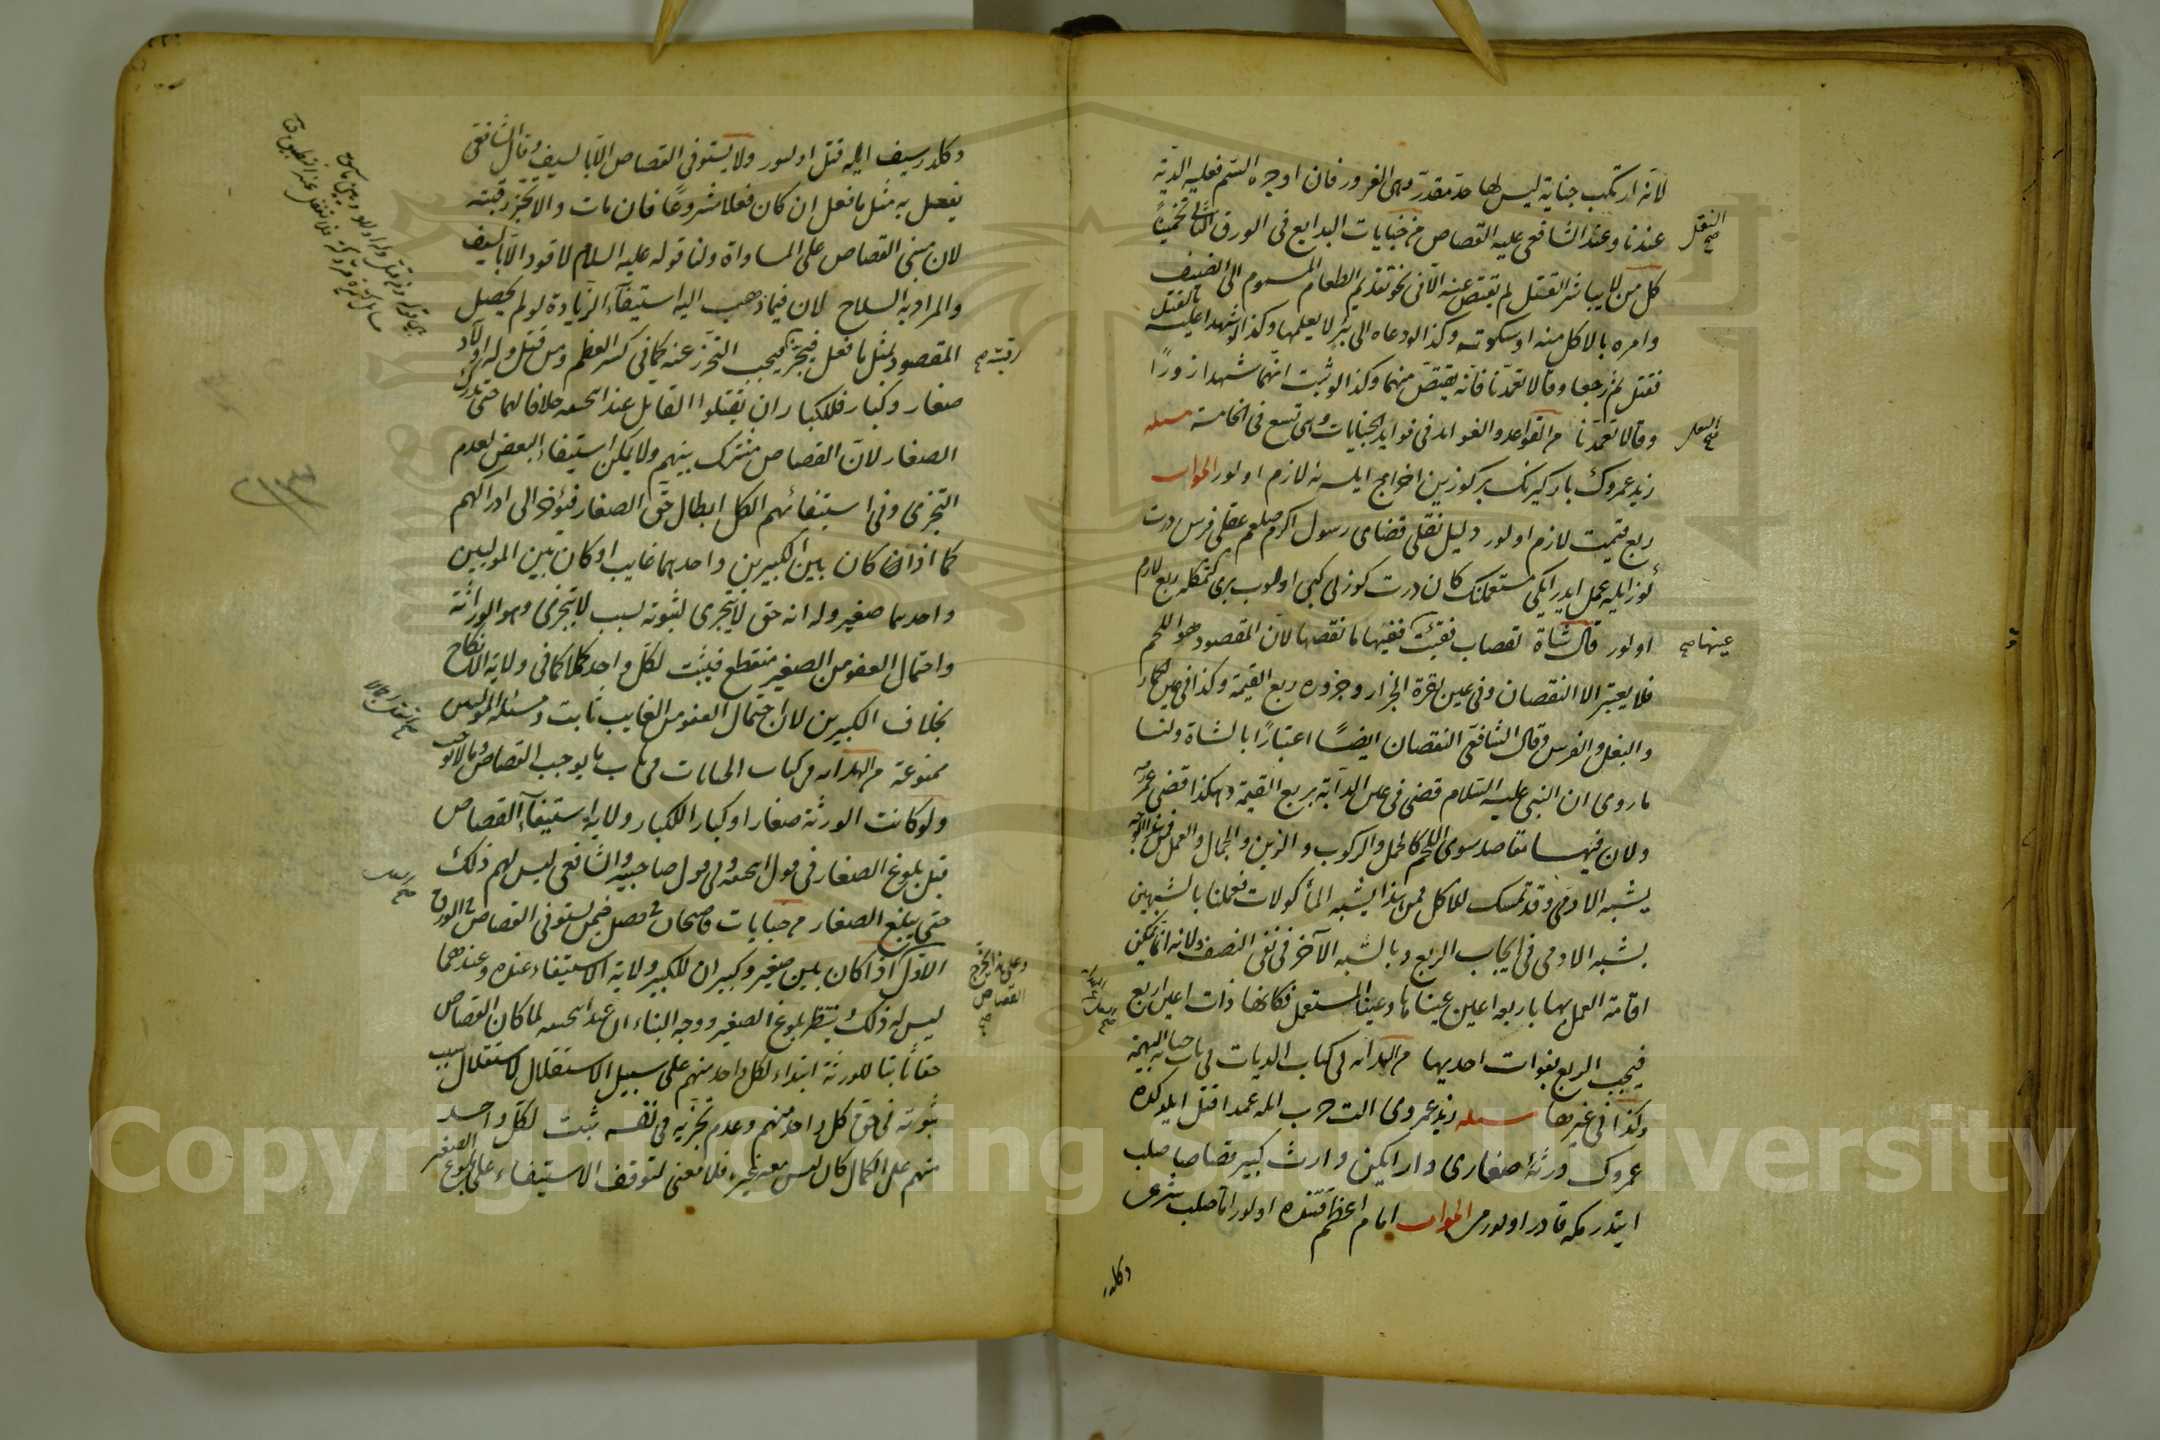 لانه ارتكب جناية ليس لها حد مقدر وهى الغرور فان اوجره السم فعليه الدية
عندنا وعند الشافعى عليه القصاص من جنايات البدايع فى الورق
كل من لا يباشر القتل لم يقتص عنه الا فى نحو تقديم الطعام المسموم الى الضيف
وامره بالاكل منه او سكوته وكذا لو دعاه الى بئر لا يعلمها وكذا لو شهدا عليه بالقتل
فقتل ثم رجعا وقالا تعمدنا فانه يقتص منهما وكذا لو ثبت انهما شهدا زورا
وقالا تعمدنا من القواعد والفوائد فى فوايد الجنايات وهى تسع فى الخامسة مسئله
زيد عمروك باركيرنك بر كوزين اخراج ايلسه نه لازم اولور الجواب
ربع قيمت لازم اولور دليل نقلى قضاى رسول اكرم صلعم عقلى فرس درت
كوز ايله عمل ايدر ايكى مستعملنك كان درت كوزلى كبى اولوب برى كتمكله ربع لازم
اولور قال شاة لقصاب فقئت ففيها ما نقصها لان المقصود هو اللحم
فلا يعتبر الا النقصان وفى عين بقرة الجزار وجزوره ربع القيمة وكذا فى عين الحمار
والبغل والفرس وقال الشافعى النقصان ايضا اعتبارا بالشاة ولنا
ما روى ان النبى عليه السلام قضى فى عين الدابة بربع القيمة وهكذا قضى عمر
ولان فيها مقاصد سوى اللحم كالحمل والركوب والزين والجمال والعمل فمن هذا الوجه
يشبه الادمى وقد تمسك للاكل فمن هذا يشبه المأكولات فعملنا بالشبهين
بشبه الادمى فى ايجاب الربع وبالشبه الآخر فى نفى النصف ولانه انما يمكن
اقامة العمل بها باربعة اعين عيناها وعينا المستعمل فكانها ذات اعين اربع
فيجب الربع بفوات احديها من الهداية فى كتاب الديات فى باب جناية البهيمة
وكذا فى غيرها مسئله زيد عمروى الت حرب ايله عمدا قتل ايلوكده
عمروك ورثۀ صغارى وار ايكين وارث كبير قصاصا صلب
ايتدرمكه قادر اولورمى الجواب امام اعظم قتنده اولور اما صلب شرعى
دكلدر
النقل صح
صح النقل
عينها صح
دكلدر سيف ايله قتل اولنور ولا يستوفى القصاص الا بالسيف وقال الشافعى
يفعل به مثل ما فعل ان كان فعلا مشروعا فان مات والا تحز رقبته
لان مبنى القصاص على المساواة ولنا قوله عليه السلام لا قود الا بالسيف
والمراد به السلاح لان فيما ذهب اليه استيفاء الزيادة لو لم يحصل
المقصود بمثل ما فعل فيحز فيجب التحرز عنه كما فى كسر العظم ومن قتل وله اولاد
صغار وكبار فللكبار ان يقتلوا القاتل عند ابى حنيفه خلافا لهما حتى يدرك
الصغار لان القصاص مشترك بينهم ولا يمكن استيفاء البعض لعدم
التجزى وفى استيفائهم الكل ابطال حق الصغار فيؤخر الى ادراكهم
كما اذا كان بين الكبيرين واحدهما غايب او كان بين الموليين
واحدهما صغير وله انه حق لا يتجزى لثبوته بسبب لا يتجزى وهو الوراثة
واحتمال العفو من الصغير منقطع فيثبت لكل واحد كملا كما فى ولاية الانكاح
بخلاف الكبيرين لان احتمال العفو من الغايب ثابت ومسئلة الموليين
ممنوعة من الهدايه من كتاب الجنايات فى باب ما يوجب القصاص وما لا يوجب
ولو كانت الورثة صغارا وكبارا للكبار ولاية استيفاء القصاص
قبل بلوغ الصغار فى قول ابى حنيفه وفى قول صاحبيه والشافعى ليس لهم ذلك
حتى يبلغ الصغار من جنايات قاضيخان فى فصل فيمن يستوفى القصاص فى الورق
الاول اذا كان بين صغير وكبير ان للكبير ولاية الاستيفاء عنده وعندهما
ليس له ذلك ينتظر بلوغ الصغير ووجه البناء ان عند ابى حنيفه لما كان القصاص
حقا ثابتا للورثة ابتداء لكل واحد منهم على سبيل الاستقلال لاستقلال سبب
ثبوته فى حق كل واحد منهم وعدم تجزيه فى نفسه ثبت لكل واحد
منهم على الكمال كان ليس معه غيره فلا معنى لتوقف الاستيفاء على بلوغ الصغير
رقبته صح
وعلى هذا يخرج
القصاص
صح
Copyright © King Saud University